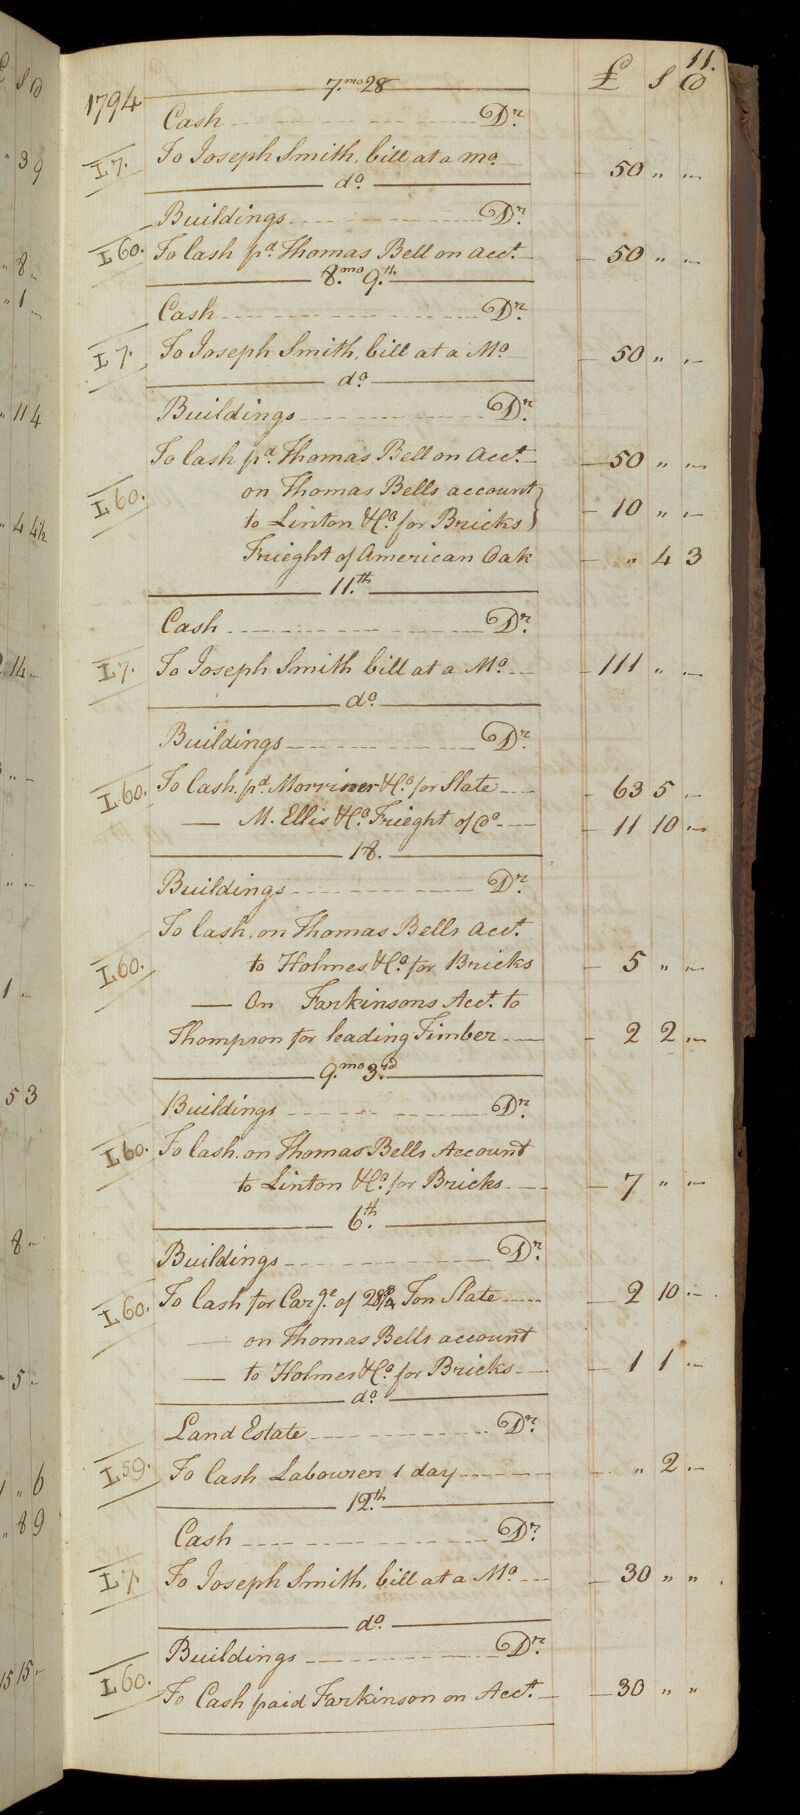 11.
1794 7.mo 28 £ S D
Cash Dr.
L 7. To Joseph Smith, bill at a mo. 50 " "
do.
Buildings Dr.
L 60. To Cash pd. Thomas Bell on Acct. 50 " "
8.mo 9.th
Cash Dr.
L 7. To Joseph Smith, bill at a Mo. 50 " "
do.
Buildings Dr.
To Cash pd. Thomas Bell on Acct. 50 " "
L 60. on Thomas Bells account
to Linton & Co. for Bricks } 10 " "
Frieght of American Oak " 4 3
11.th
Cash Dr.
L 7. To Joseph Smith bill at a Mo. 111 " "
do.
Buildings Dr.
L 60. To Cash pd. Morriner & Co. for Slate 63 5 "
— M. Ellis & Co. Frieght of Do. 11 10 "
18.
Buildings Dr.
To Cash, on Thomas Bells Acct.
L 60. to Holmes & Co. for Bricks 5 " "
— On Farkinsons Acct. to
Thompson for leading Timber 2 2 "
9.mo 3.rd
Buildings Dr.
L 60. To Cash on Thomas Bells Account
to Linton & Co. for Bricks 7 " "
6.th
Buildings Dr.
L 60. To Cash for Carge. of Ton Slate 2 10 "
— on Thomas Bells account
— to Holmes & Co. for Bricks 1 1 "
do.
Land Estate Dr.
L 59. To Cash Labourer 1 day " 2 "
12.th
Cash Dr.
L 7. To Joseph Smith, bill at a Mo. 30 " "
do.
Buildings Dr.
L 60. To Cash paid Farkinson on Acct. 30 " "
£ S D
" 3 9
" 8 -
" 1 -
" 11 4
" 4 4½
14 -
" -
" -
1 -
5 3
8 -
5 -
" 6
" 8 9
15 15 -